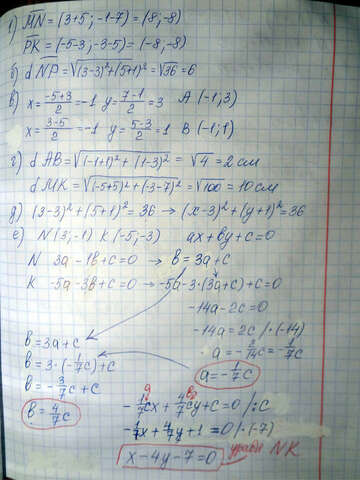 а) MN = (3+5; -1-7) = (8; -8)
PK = (-5-3; -3-5) = (-8; -8)
б) d NP = √(3-3)²+(5+1)² = √36 = 6
в) x = (-5+3)/2 = -1 y = (7-1)/2 = 3 A (-1; 3)
x = (3-5)/2 = -1 y = (5-3)/2 = 1 B (-1; 1)
г) d AB = √(-1+1)²+(1-3)² = √4 = 2 см
d MK = √(-5+5)²+(-3-7)² = √100 = 10 см
д) (3-3)²+(5+1)² = 36 → (x-3)²+(y+1)² = 36
е) N (3; -1) K (-5; -3) ax+by+c=0
N 3a-1b+c=0 → b=3a+c
K -5a-3b+c=0 → -5a-3·(3a+c)+c=0
-14a-2c=0
-14a=2c /·(-14)
a = -2/14c = -1/7c
a = -1/7c
b=3a+c
b=3·(-1/7c)+c
b=-3/7c+c
b=4/7c
a b
-1/7cx+4/7cy+c=0 /:c
-1/7x+4/7y+1=0 /·(-7)
x-4y-7=0 NK